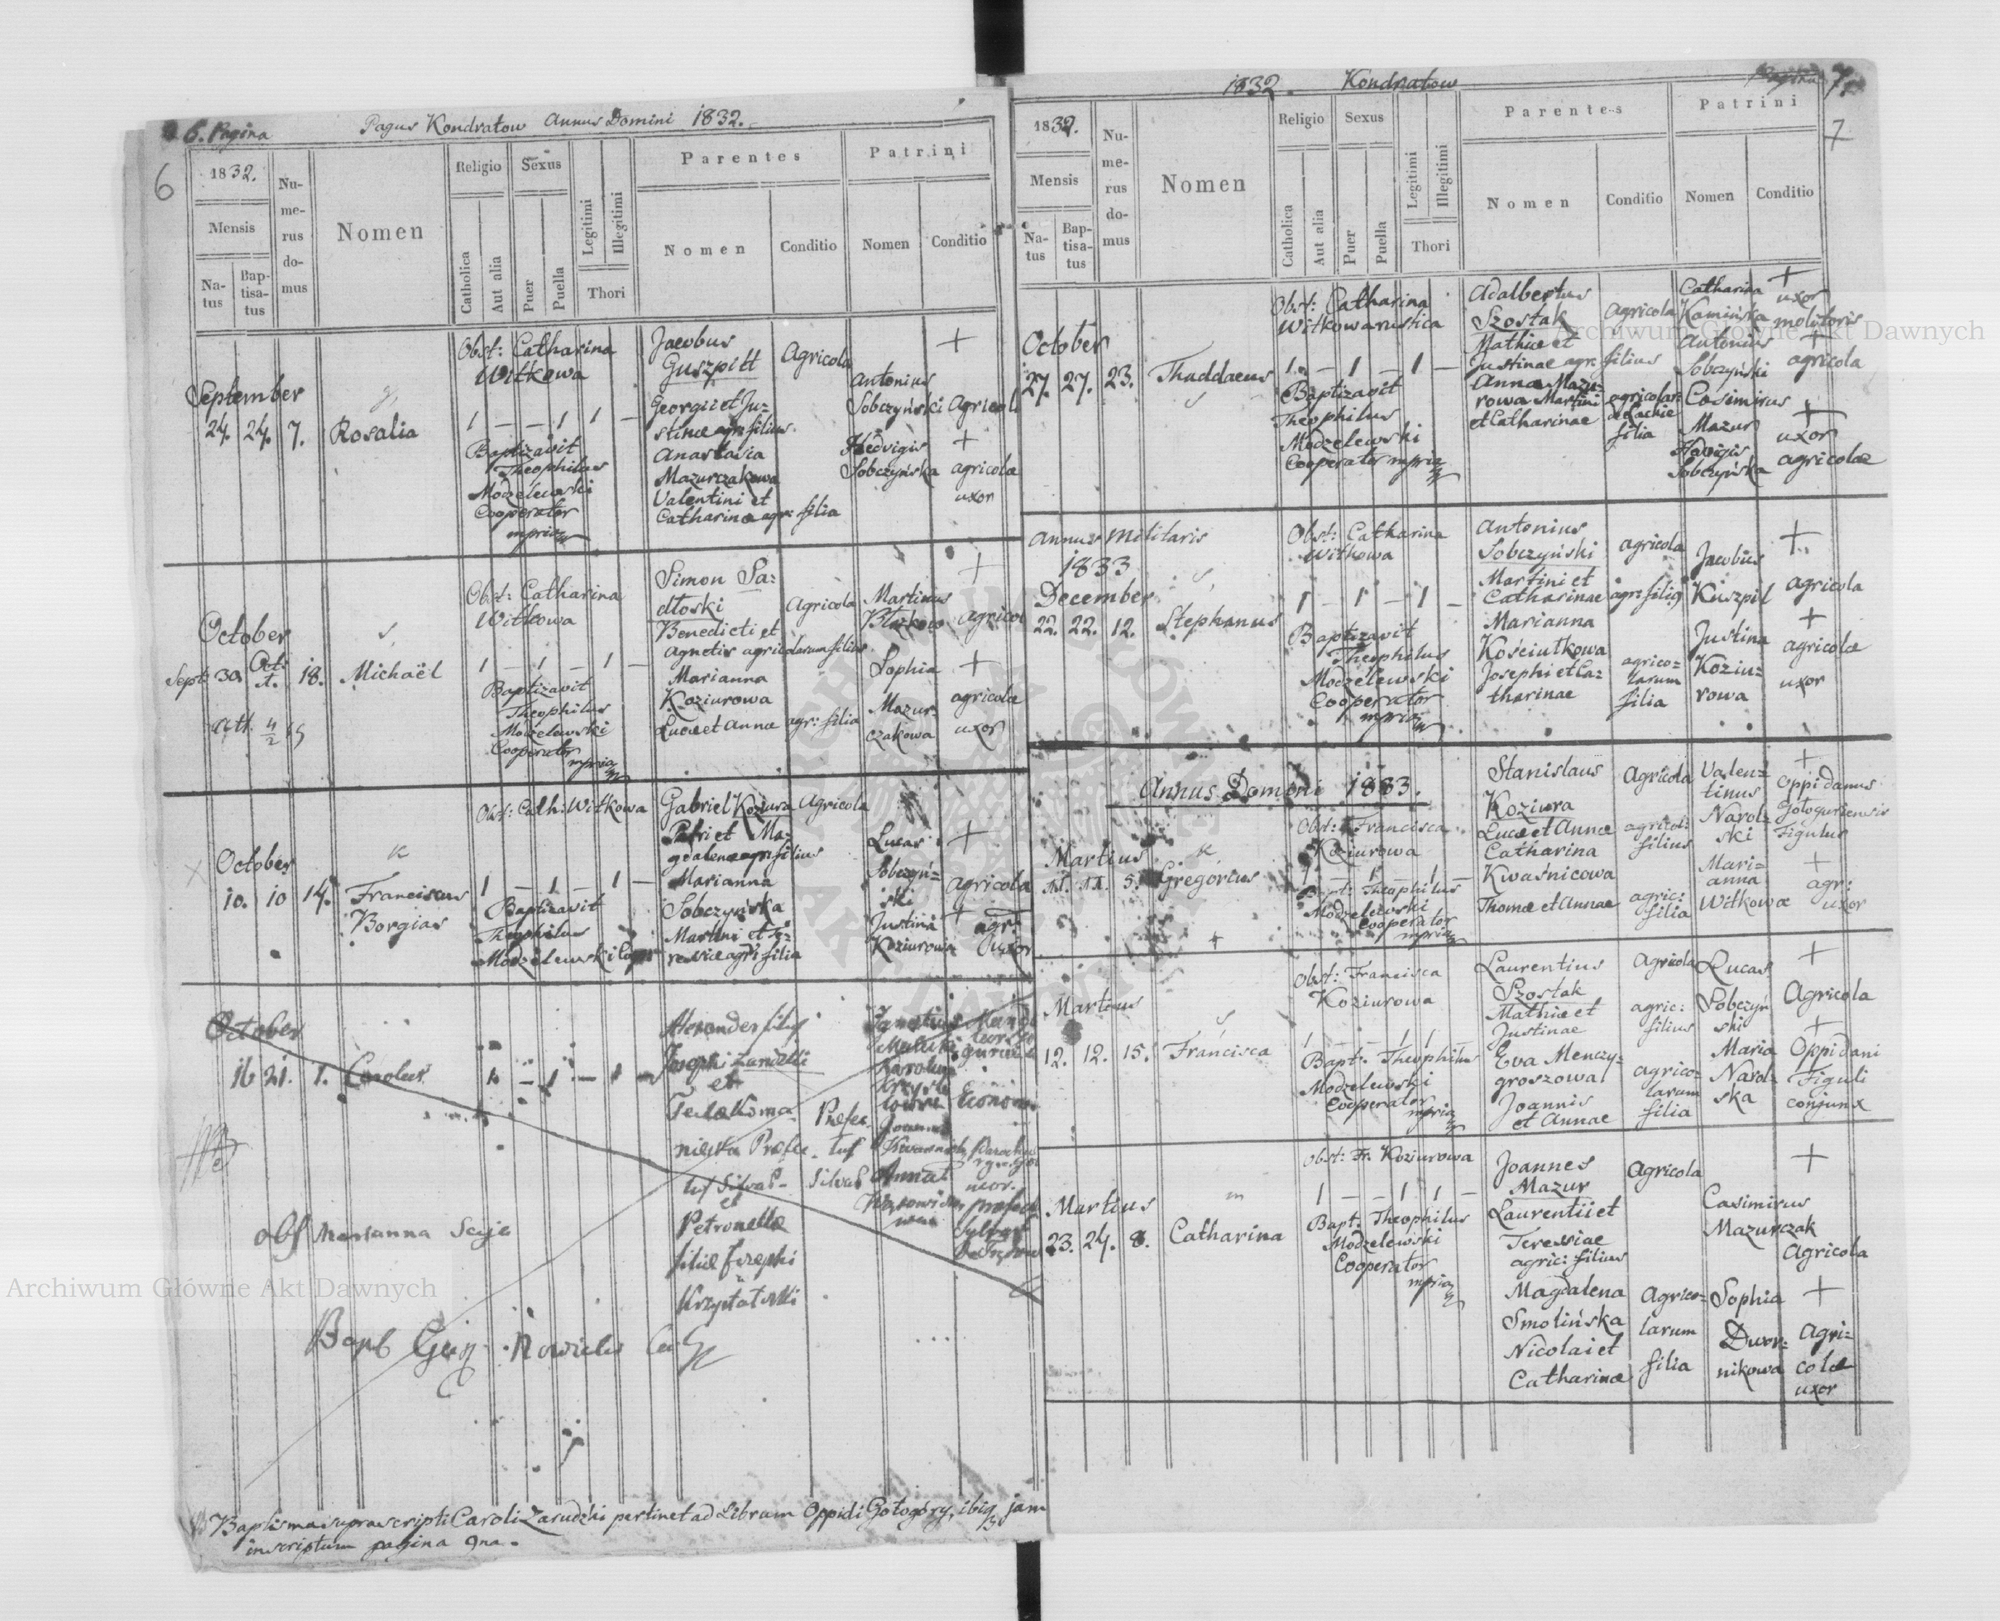 6. Pagina
Pagus Kondratow Annus Domini 1832.
6
1832.
Mensis
Natus
Baptisatus
Numerus domus
Nomen
Religio
Catholica
Aut alia
Sexus
Puer
Puella
Legitimi
Illegitimi
Thori
Parentes
Nomen
Conditio
Patrini
Nomen
Conditio
September
24. 24. 7. Rosalia
Obst: Catharina
Witkowa
1 — — 1 1 —
Baptizavit
Theophilus
Modzelewski
Cooperator
mpria
Jacobus
Guszpitt
Georgii et Ju-
stinae agr: filius
Anastasia
Mazurczakowa
Valentini et
Catharinae agr: filia
Agricola
Antonius
Sobczyński Agricola
Hedvigis
Sobczyńska
agricolae
uxor
October
Sept: 30. Oct: 1. 18. Michaël
Obst: Catharina
Witkowa
1 — 1 — 1 —
Baptizavit
Theophilus
Modzelewski
Cooperator
mpria
Simon Sa-
dłoski
Benedicti et
Agnetis agricolarum filius
Marianna
Koziurowa
Lucae et Annae agr: filia
Agricola
Martinus
agricola
Sophia
Mazur-
czakowa
agricolae
uxor
October
10. 10 14. Franciscus
Borgias
Obst: Cath: Witkowa
1 — 1 — 1 —
Baptizavit
Theophilus
Modzelewski Coopr
Gabriel Koziura Agricola
Petri et Ma-
gdalenae agr: filius
Marianna
Sobczyńska
Martini et Te-
resiae agr: filia
Lucas
Sobczyń-
ski
Agricola
Justina
Koziurowa
agr:
uxor
October
16 21. 1. Carolus
1 — 1 — 1 —
Alexander filius
Josephi Zarudzki
et
Teclae
Praefec-
tus
Silvas
et
Petronella
filia Josephi
Krzyształowski
Ignatius
Karolina
Joannes
Anna
obs Marianna
Bapt
Baptisma suprascripti Caroli Zarudzki pertinet ad Librum Oppidi Gołogóry, ibiq jam
inscriptum pagina 9na.
1832. Kondratow
Pagina 7.
7
1832.
Mensis
Natus
Baptisatus
Numerus domus
Nomen
Religio
Catholica
Aut alia
Sexus
Puer
Puella
Legitimi
Illegitimi
Thori
Parentes
Nomen
Conditio
Patrini
Nomen
Conditio
October
27. 27. 23. Thaddaeus
Obst: Catharina
Witkowa rustica
1 — 1 — 1 —
Baptizavit
Theophilus
Modzelewski
Cooperator mpria
Adalbertus
Szostak
Mathiae et
Justinae agr: filius
Anna Mazu-
rowa Martini
et Catharinae
Agricola
filia
Catharina
Kamińska
uxor
molitoris
Antonius
Sobczyński
agricola
Casimirus
Mazur
Havigis
Sobczyńska
uxor
agricolae
Annus Militaris
1833
December
22. 22. 12. Stephanus
Obst: Catharina
Witkowa
1 — 1 — 1 —
Baptizavit
Theophilus
Modzelewski
Cooperator
mpria
Antonius
Sobczyński
Martini et
Catharinae agr: filius
Marianna
Kościutkowa
Josephi et Ca-
tharinae
agricola
agrico-
larum
filia
Jacobus
Kuszpil
agricola
Justina
Koziu-
rowa
agricolae
uxor
Annus Domini 1833.
Martius
11. 11. 5. Gregorius
Obst: Francisca
Koziurowa
1 — 1 — 1 —
Bapt: Theophilus
Modzelewski
Cooperator
mpria
Stanislaus
Koziura
Lucae et Annae
Catharina
Kwaśnicowa
Thomae et Annae
Agricola
agricol:
filius
agric:
filia
Valen-
tinus
Narol-
ski
Oppidanus
Gologuriensis
Figulus
Mari-
anna
Witkowa
agr:
uxor
Martius
12. 12. 15. Francisca
Obst: Francisca
Koziurowa
1 — — 1 1
Bapt: Theophilus
Modzelewski
Cooperator
mpria
Laurentius
Szostak
Mathiae et
Justinae
Eva Menczy-
groszowa
Joannis
et Annae
Agricola
agric:
filius
agrico-
larum
filia
Lucas
Sobczyń-
ski
Agricola
Maria
Narol-
ska
Oppidani
Figuli
conjunx
Martius
23. 24. 8. Catharina
Obst: Fr. Koziurowa
1 — — 1 1 —
Bapt: Theophilus
Modzelewski
Cooperator
mpria
Joannes
Mazur
Laurentii et
Teressiae
agric: filius
Magdalena
Smolińska
Nicolai et
Catharinae
Agricola
Agrico-
larum
filia
Casimirus
Mazurczak
Agricola
Sophia
Dwor-
nikowa
Agri-
colae
uxor
Archiwum Główne Akt Dawnych
Archiwum Główne Akt Dawnych